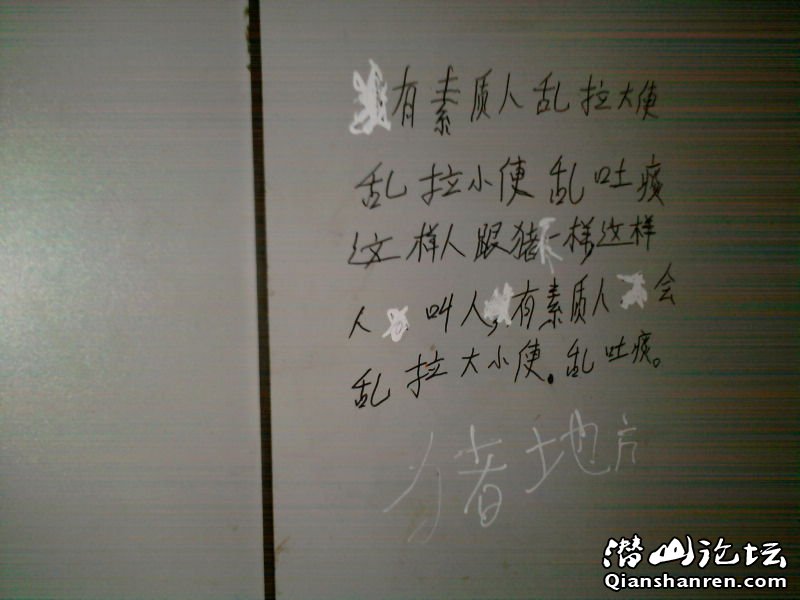 有素质人乱拉大便
乱拉小便乱吐痰
这样人跟猪一样,这样
人叫人,有素质人会
乱拉大小便.乱吐痰。
猪地方
潜山论坛
Qianshanren.com